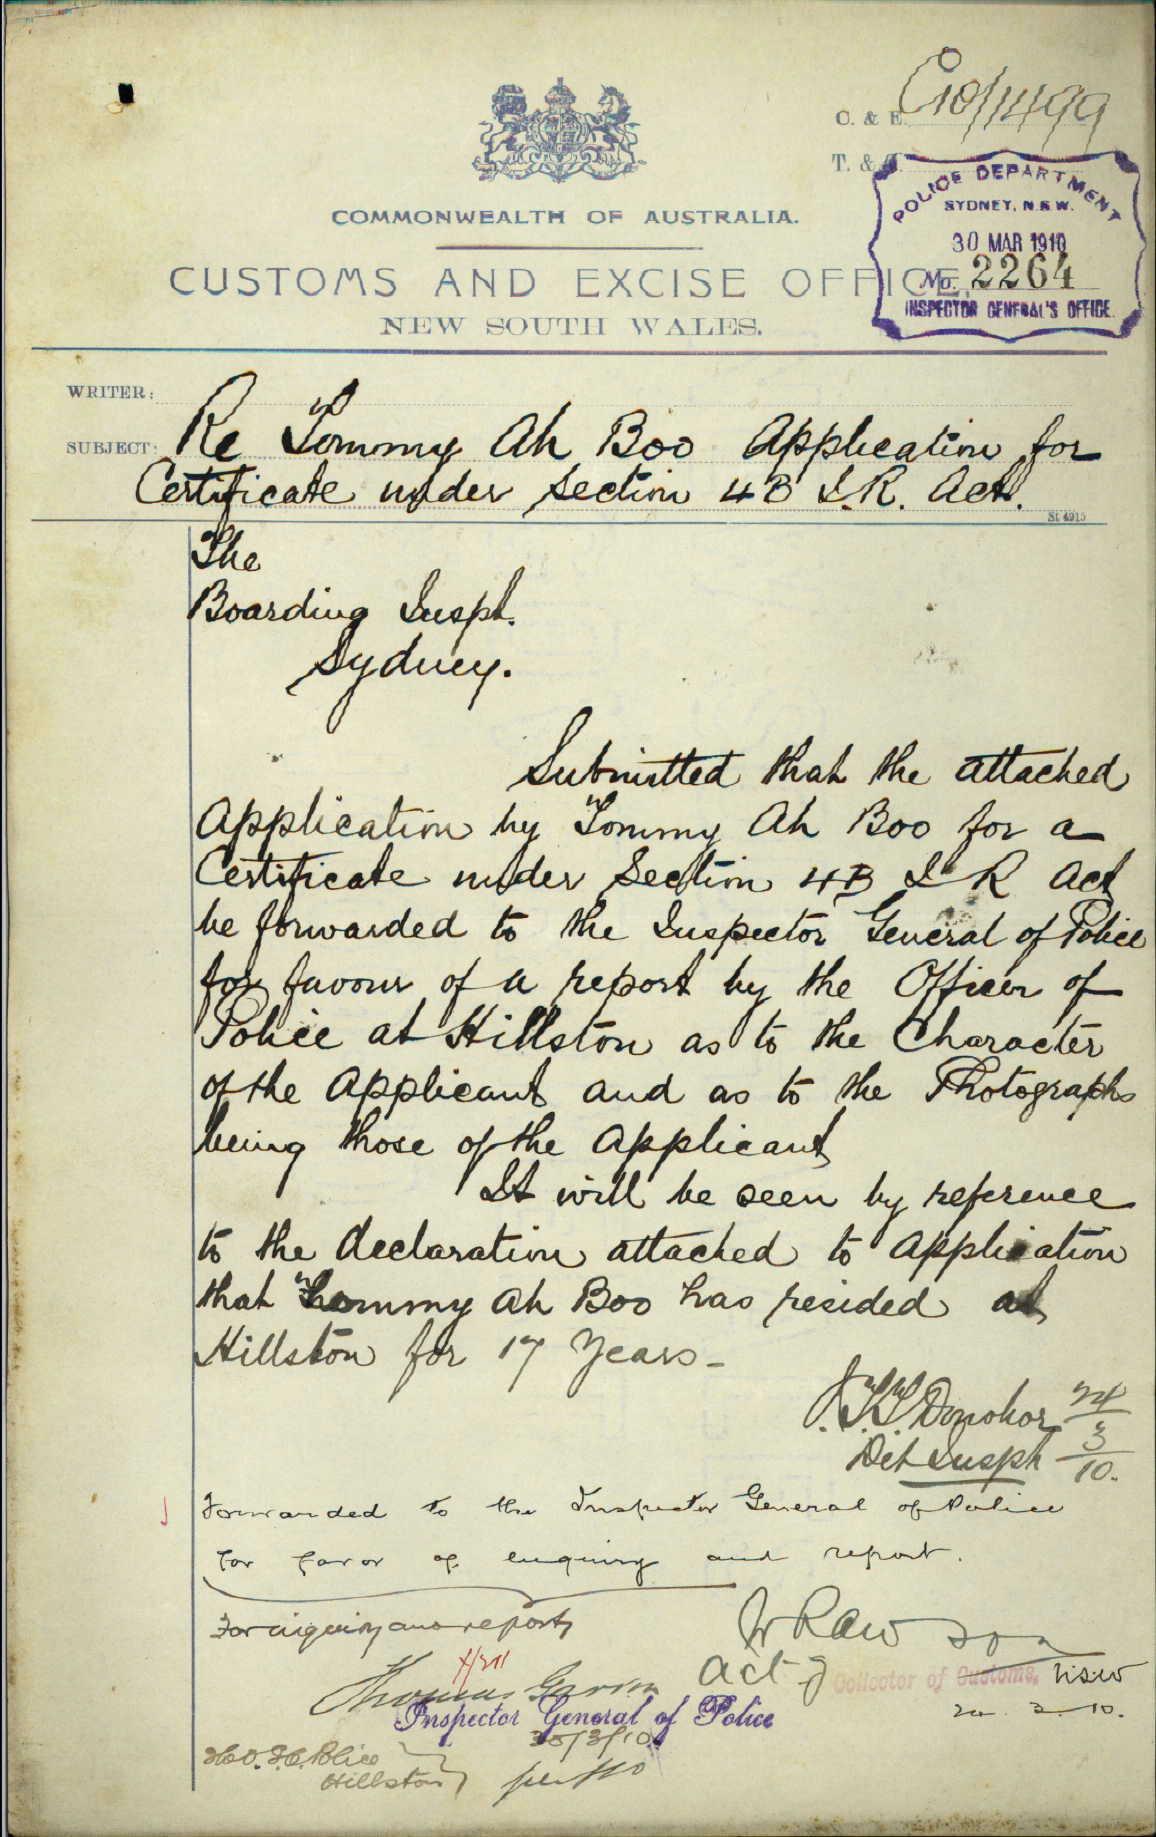 C10/1499
C. & E.
T. & C.
POLICE DEPARTMENT
SYDNEY, N.S.W.
30 MAR 1910
No. 2264
INSPECTOR GENERAL'S OFFICE.
COMMONWEALTH OF AUSTRALIA.
CUSTOMS AND EXCISE OFFICE,
NEW SOUTH WALES.
WRITER:
SUBJECT: Re Tommy Ah Boo Application for
Certificate under Section 4B I.R. Act.
St. 4915
The
Boarding Inspt.
Sydney.
Submitted that the attached
Application by Tommy Ah Boo for a
Certificate under Section 4B I R Act
be forwarded to the Inspector General of Police
for favour of a report by the Officer of
Police at Hillston as to the Character
of the Applicant and as to the Photographs
being those of the Applicant
It will be seen by reference
to the declaration attached to Application
that Tommy Ah Boo has resided at
Hillston for 17 Years -
J.T.T. Donohoe 24/3/10.
Det Inspt
Forwarded to the Inspector General of Police
for favor of enquiry and report.
For inquiry and report
W Rawson
Actg Collector of Customs, NSW
3 10.
Thomas Garvin
Inspector General of Police
30/3/10
Police
Hillston